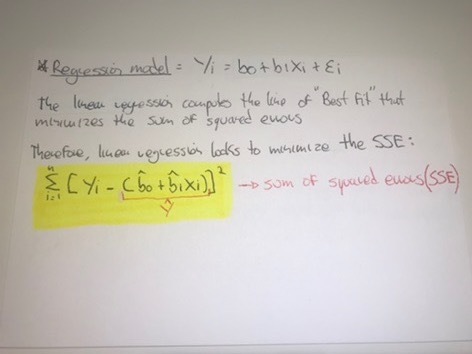 * Regression model = Yi = b0 + b1xi + εi
The linear regression computes the line of "Best Fit" that
minimizes the sum of squared errors
Therefore, linear regression looks to minimize the SSE:
n
∑ [Yi - (b̂0 + b̂1xi)]² → sum of squared errors (SSE)
i=1
ŷ